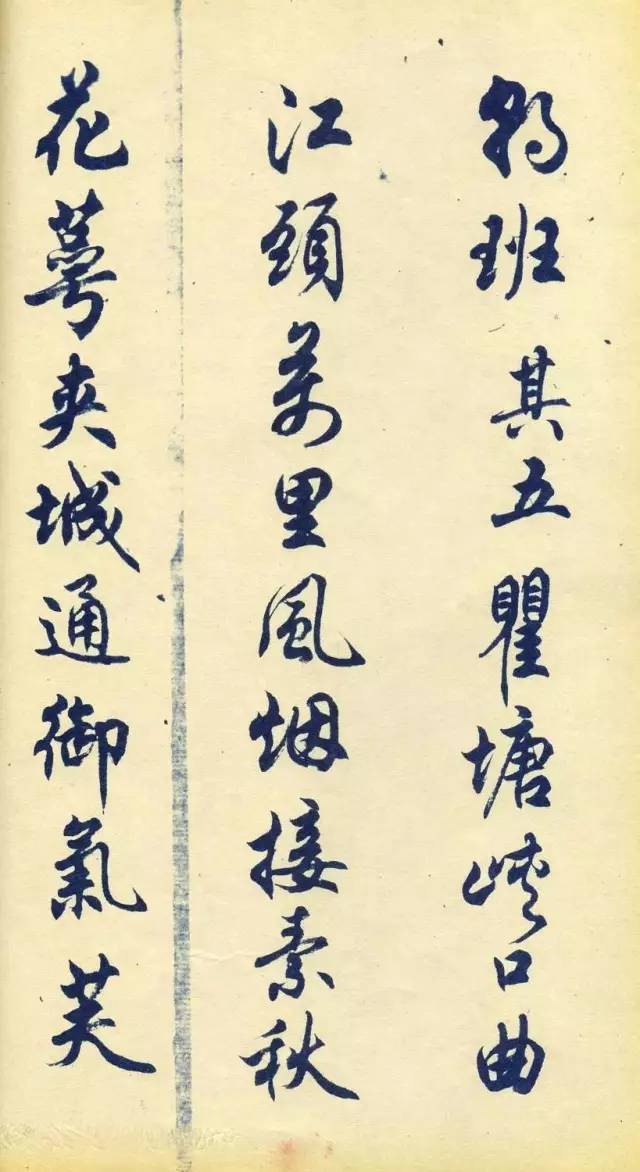 朝班其五瞿塘峡口曲
江頭萬里風烟接素秋
花萼夹城通御氣芙